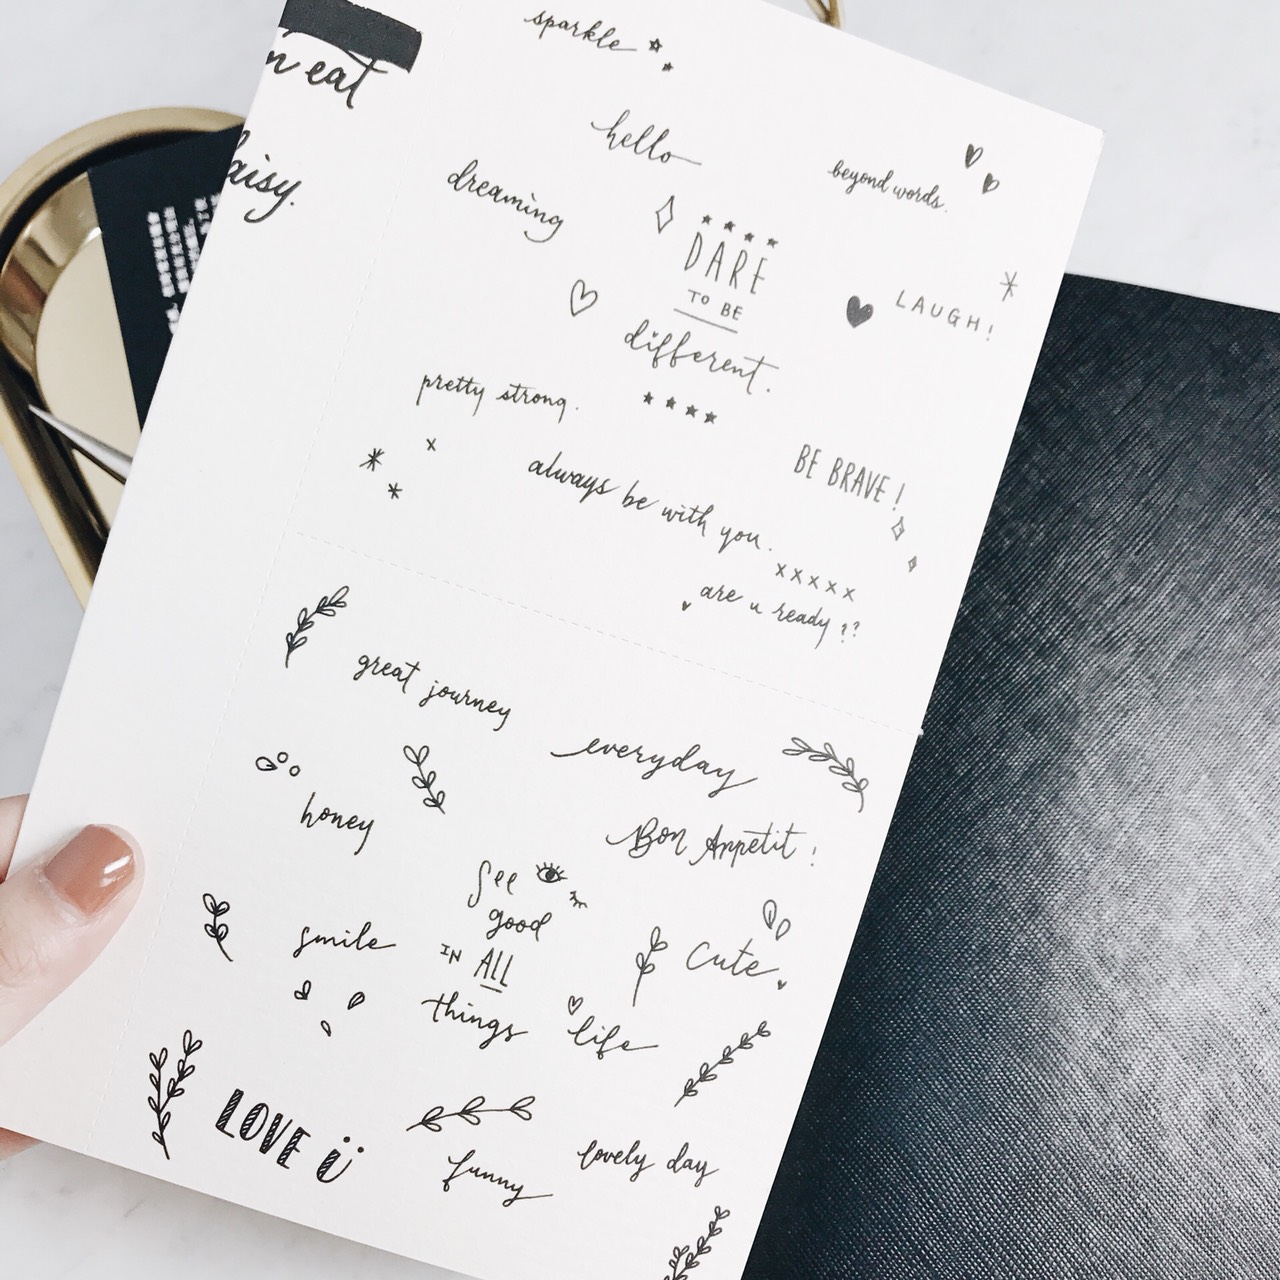 n' eat
aisy.
sparkle
hello
beyond words.
dreaming
DARE
TO BE
different.
LAUGH!
pretty strong.
BE BRAVE!
always be with you.
xxxxx
are u ready??
great journey
everyday
honey
Bon Appetit!
See
good
IN ALL
things
smile
Cute
life
LOVE ü
funny
lovely day